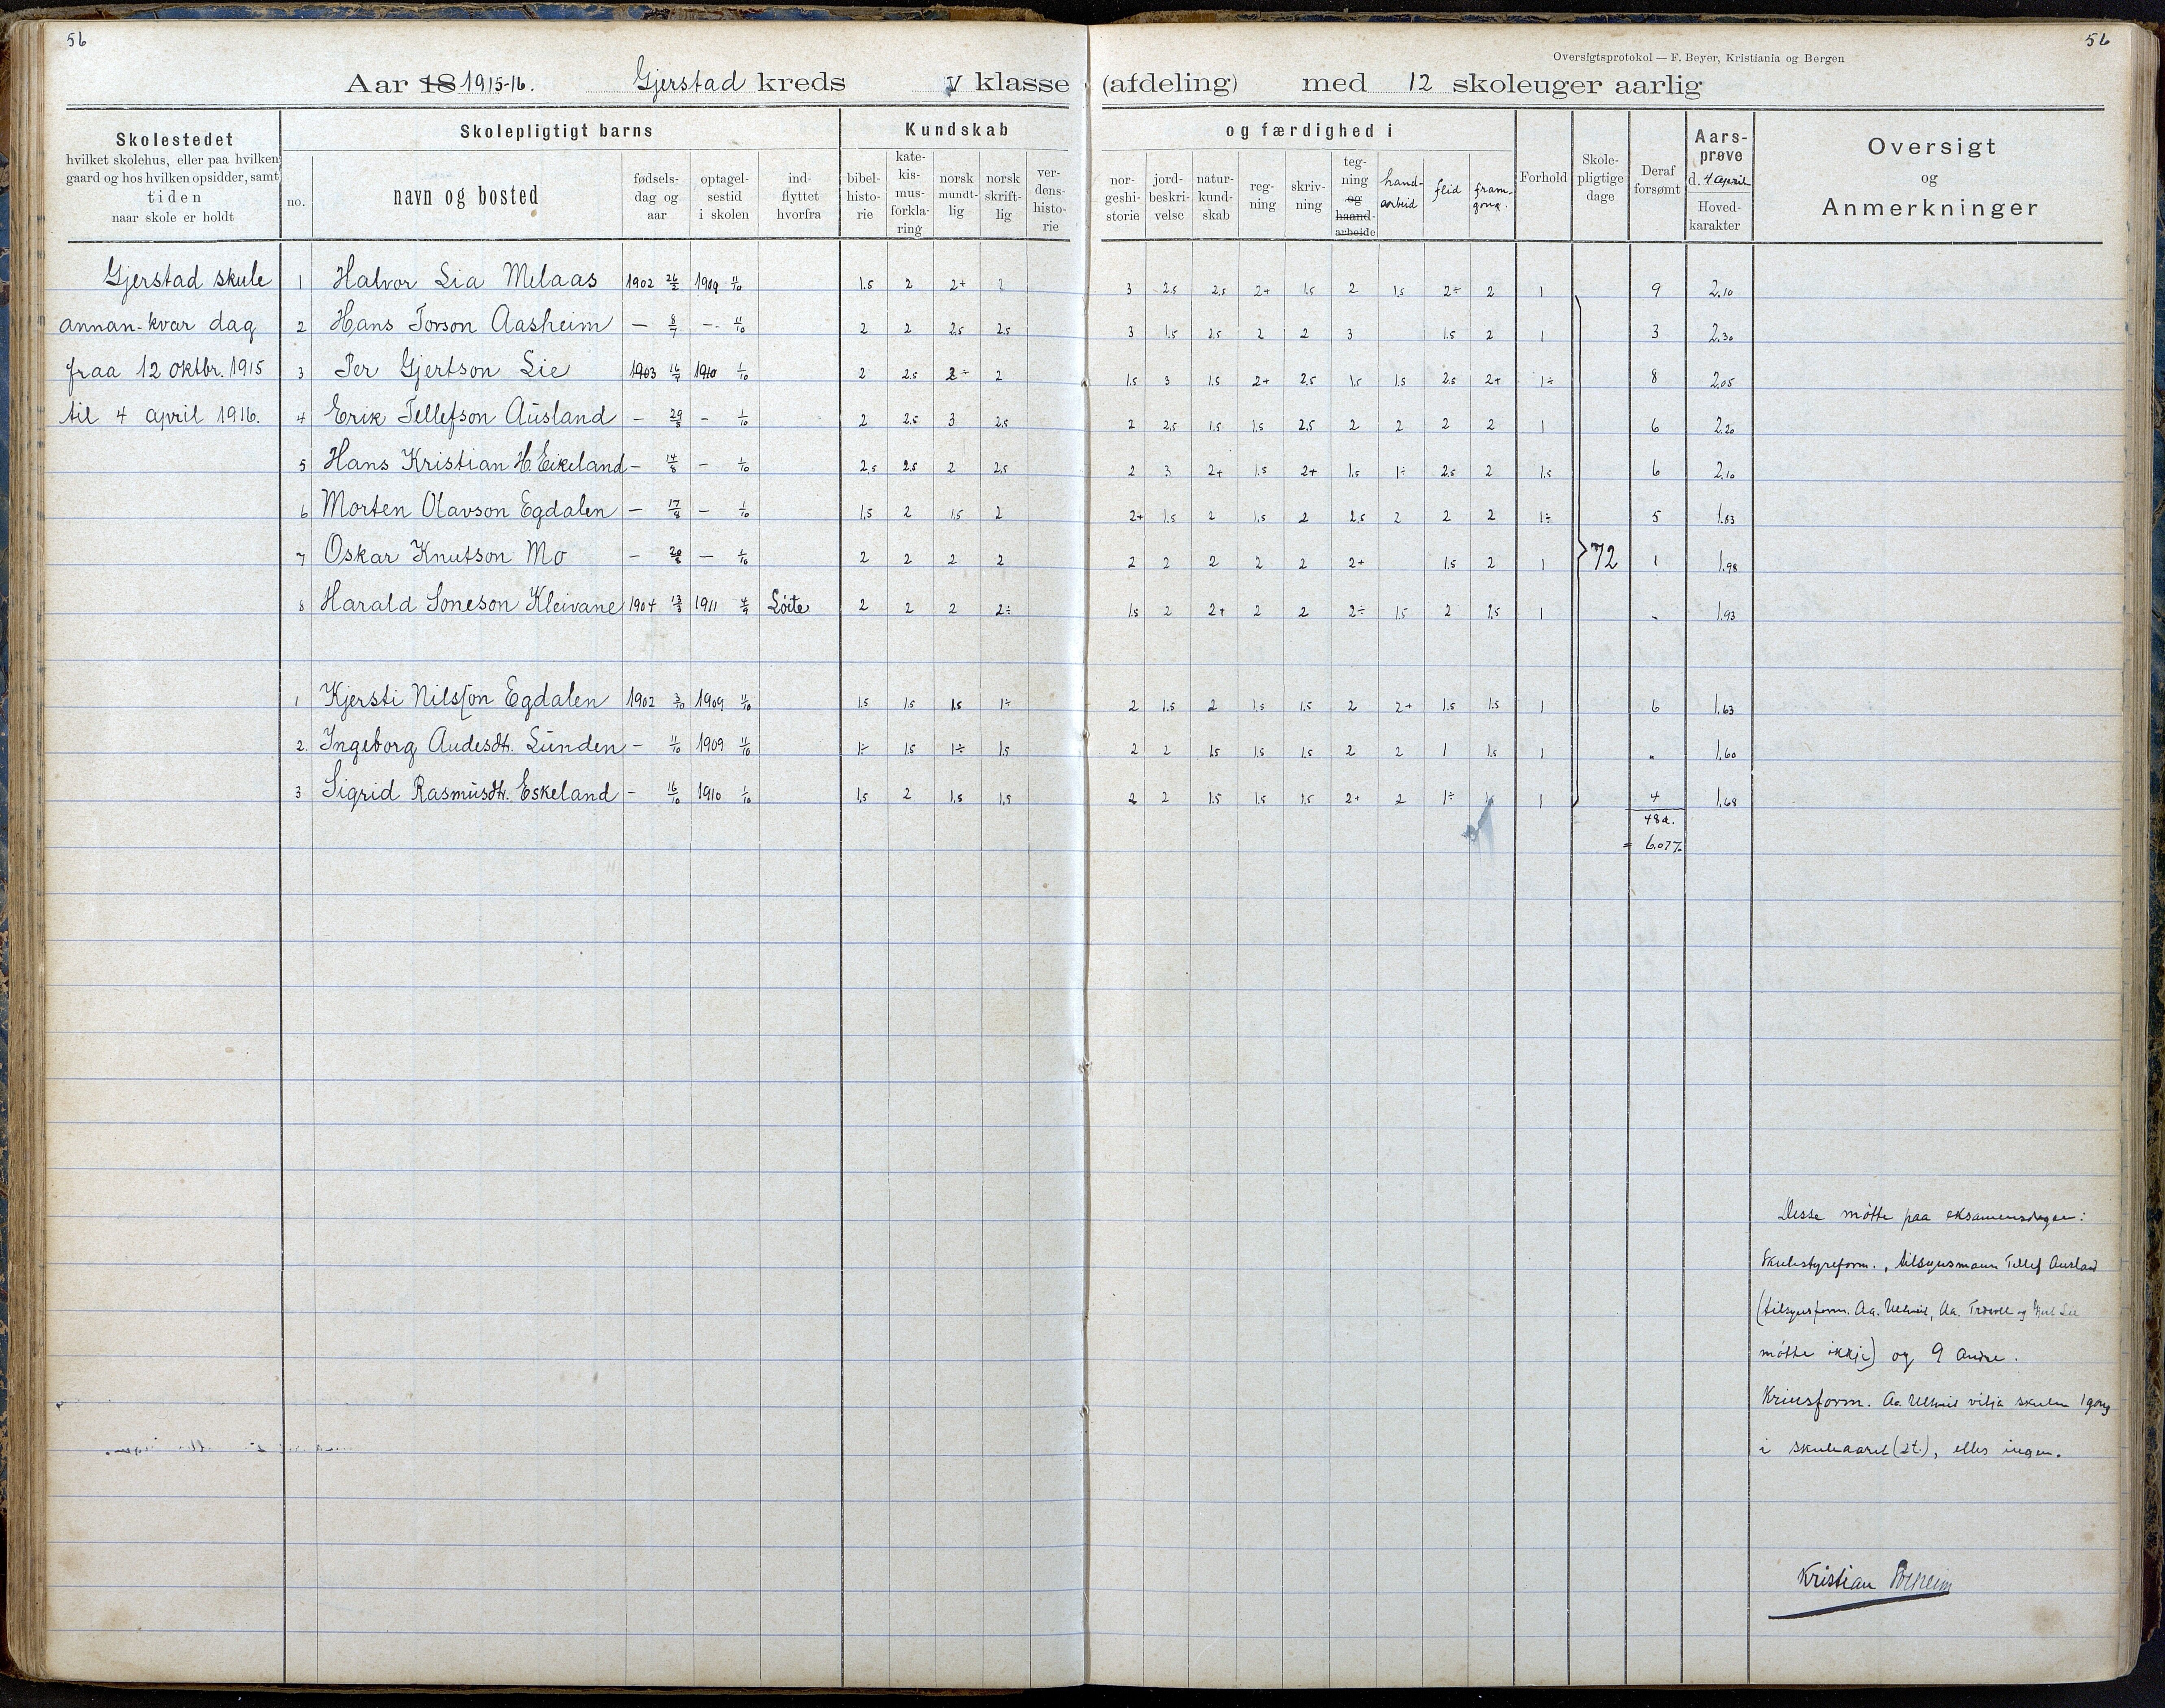 56
56
Oversigtsprotokol — F. Beyer, Kristiania og Bergen
Aar 18 1915-16. Gjerstad kreds V klasse (afdeling) med 12 skoleuger aarlig
Skolestedet
hvilket skolehus, eller paa hvilken
gaard og hos hvilken opsidder, samt
tiden
naar skole er holdt
Skolepligtigt barns
no.
navn og bosted
fødsels-
dag og
aar
optagel-
sestid
i skolen
ind-
flyttet
hvorfra
Kundskab
bibel-
histo-
rie
kate-
kis-
mus-
forkla-
ring
norsk
mundt-
lig
norsk
skrift-
lig
ver-
dens-
histo-
rie
og færdighed i
nor-
geshi-
storie
jord-
beskri-
velse
natur-
kund-
skab
reg-
ning
skriv-
ning
teg-
ning
og
haand-
arbeide
hand-
arbeid
flid
fram-
gong.
Forhold
Skole-
pligtige
dage
Deraf
forsømt
Aars-
prøve
d. 4 april
Hoved-
karakter
Oversigt
og
Anmerkninger
Gjerstad skule 1 Halvor Lia Melaas 1902 26/2 1909 11/10 1.5 2 2+ 2 3 2.5 2.5 2+ 1.5 2 1.5 2÷ 2 1 9 2.10
annan-kvar dag 2 Hans Torson Aasheim — 8/7 — 11/10 2 2 2.5 2.5 3 1.5 2.5 2 2 3 1.5 2 1 3 2.30
fraa 12 oktbr. 1915 3 Per Gjertson Lie 1903 16/7 1910 1/10 2 2.5 2÷ 2 1.5 3 1.5 2+ 2.5 1.5 1.5 2.5 2+ 1÷ 8 2.05
til 4 april 1916. 4 Erik Tellefson Ausland — 29/8 — 1/10 2 2.5 3 2.5 2 2.5 1.5 1.5 2.5 2 2 2 2 1 6 2.20
5 Hans Kristian H. Eikeland — 14/8 — 1/10 2.5 2.5 2 2.5 2 3 2+ 1.5 2+ 1.5 1÷ 2.5 2 1.5 6 2.10
6 Morten Olavson Egdalen — 17/8 — 1/10 1.5 2 1.5 2 2+ 1.5 2 1.5 2 2.5 2 2 2 1÷ 5 1.83
7 Oskar Knutson Mo — 20/8 — 1/10 2 2 2 2 2 2 2 2 2 2+ 1.5 2 1 72 1 1.98
8 Harald Soneson Kleivane 1904 13/8 1911 4/9 Löite 2 2 2 2÷ 1.5 2 2+ 2 2 2÷ 1.5 2 1.5 1 „ 1.93
1 Kjersti Nilsson Egdalen 1902 3/10 1909 11/10 1.5 1.5 1.5 1÷ 2 1.5 2 1.5 1.5 2 2+ 1.5 1.5 1 6 1.63
2. Ingeborg Audesdtr. Lunden — 11/10 1909 11/10 1÷ 1.5 1÷ 1.5 2 2 1.5 1.5 1.5 2 2 1 1.5 1 „ 1.60
3 Sigrid Rasmusdtr. Eskeland — 16/10 1910 1/10 1.5 2 1.5 1.5 2 2 1.5 1.5 1.5 2+ 2 1÷ 1 4 1.68
48 d.
= 6.07%
Desse mötte paa eksamensdagen:
Skulestyreform., tilsynsmann Tellef Ausland
(tilsynsform. Aa. Ulltveit, Aa. og Lie
mötte ikkje) og 9 andre.
Krinsform. Aa. Ulltveit vitja skulen 1 gong
i skuleaaret (2t.), elles ingen.
Kristian